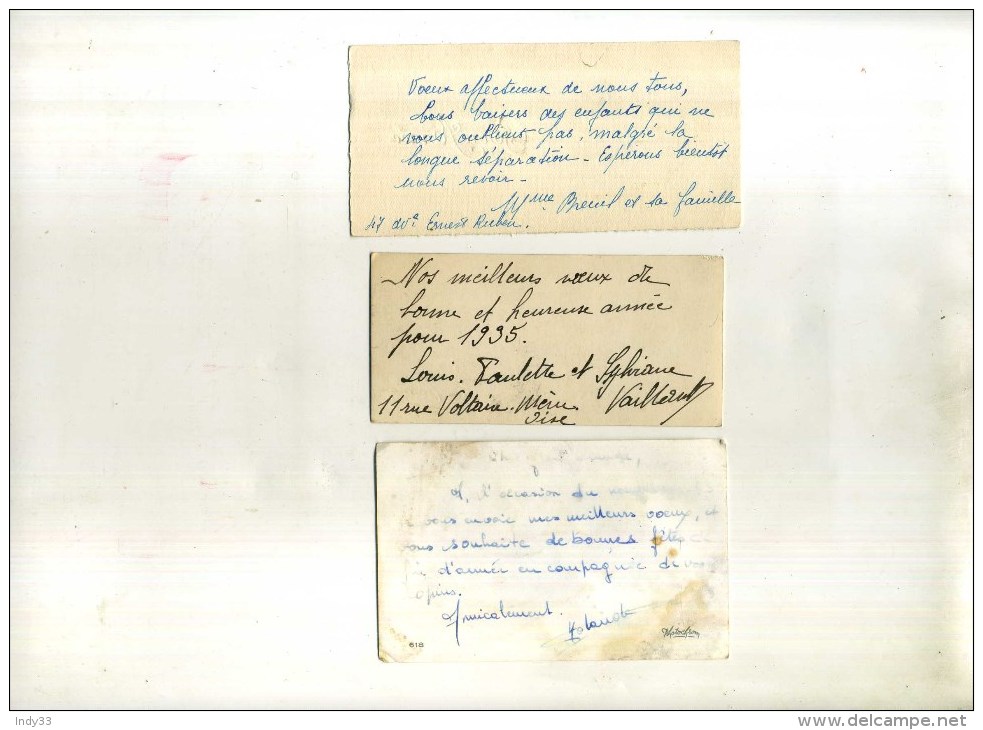 Voeux affectueux de nous tous,
bons baisers des enfants qui ne
vous oublient pas, malgré la
longue séparation - Espérons bientôt
nous revoir -
Mme Breuil et sa famille
47 dve Ernest Ruben.
Nos meilleurs vœux de
bonne et heureuse année
pour 1935.
Louis. Paulette et Sylviane
11 rue Voltaire. Méru
Oise
A, l'occasion du
vous envoie mes meilleurs voeux, et
vous souhaite de bonnes fêtes de
d'année en compagnie de vos
Amicalement.
618
Indy33
www.delcampe.net